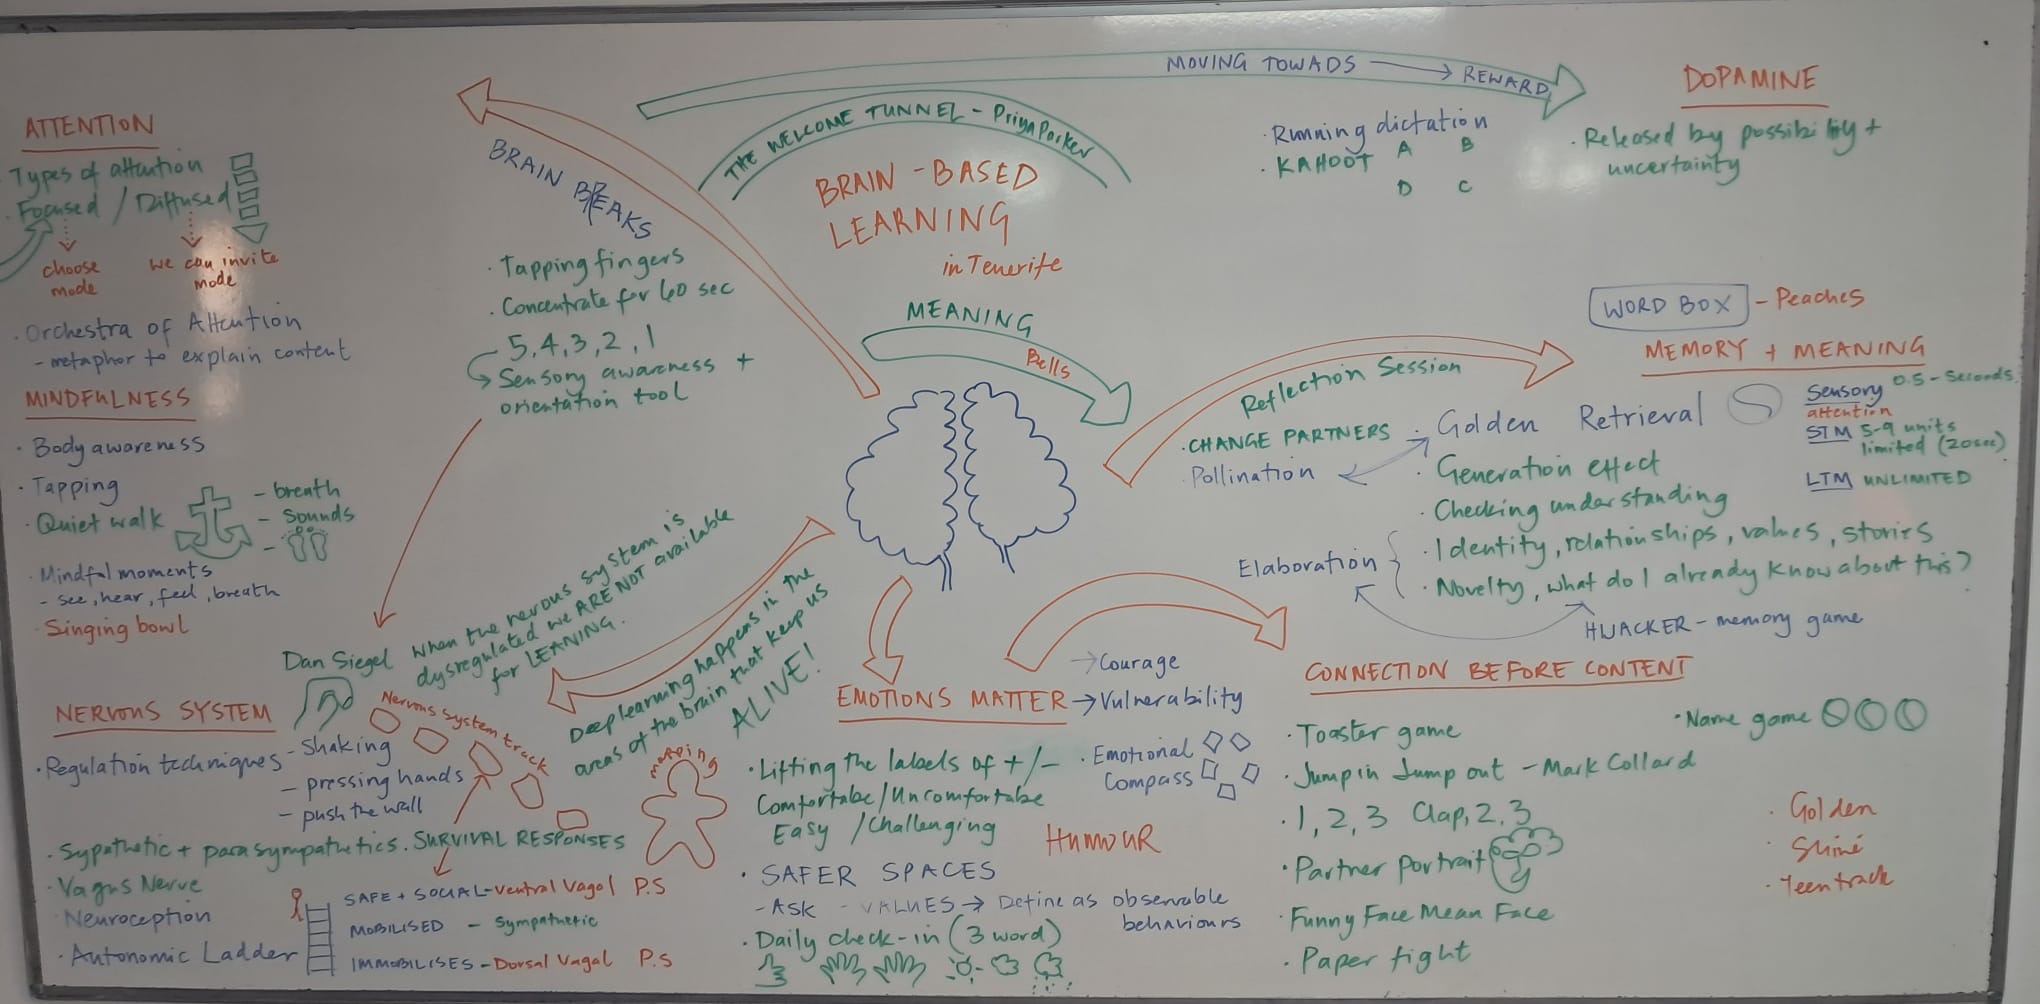 BRAIN-BASED
LEARNING
in Tenerife
THE WELCOME TUNNEL - Priya Parker
MOVING TOWADS → REWARD
DOPAMINE
. Released by possibility +
uncertainty
. Running dictation
. KAHOOT A B
D C
ATTENTION
Types of attention
. Focused / Diffused
choose
mode
we can invite
mode
. Orchestra of Attention
- metaphor to explain content
MINDFULNESS
. Body awareness
. Tapping
. Quiet walk
- breath
- sounds
-
. Mindful moments
- see, hear, feel, breath
. Singing bowl
BRAIN BREAKS
. Tapping fingers
. Concentrate for 60 sec
5, 4, 3, 2, 1
Sensory awareness +
orientation tool
MEANING
Bells
Reflection Session
WORD BOX - Peaches
MEMORY + MEANING
. CHANGE PARTNERS
Pollination
. Golden Retrieval
. Generation effect
. Checking understanding
Elaboration
. Identity, relationships, values, stories
. Novelty, what do I already know about this?
HIJACKER - memory game
Sensory 0.5 - seconds
attention
STM 5-9 units
limited (20sec)
LTM UNLIMITED
Dan Siegel
When the nervous system is
dysregulated we ARE NOT available
for LEANING.
Deep learning happens in the
areas of the brain that keep us
ALIVE!
NERVOUS SYSTEM
Nervous System track
. Regulation techniques - Shaking
- pressing hands
- push the wall
. Sypathetic + parasympathetics. SURVIVAL RESPONSES
. Vagus Nerve
. Neuroception
. Autonomic Ladder
SAFE + SOCIAL - Ventral Vagal P.S
MOBILISED - Sympathetic
IMMOBILISES - Dorsal Vagal P.S
EMOTIONS MATTER
→ Courage
→ Vulnerability
. Lifting the labels of +/-
Comfortabe/Uncomfortabe
Easy / Challenging
. Emotional
Compass
HUMOUR
. SAFER SPACES
- Ask - VALUES → Define as observable
behaviours
. Daily check-in (3 word)
CONNECTION BEFORE CONTENT
. Toaster game
. Jump in Jump out - Mark Collard
. 1, 2, 3 Clap, 2, 3
. Partner Portrait
. Funny Face Mean Face
. Paper fight
. Name game
. Golden
. Teen track